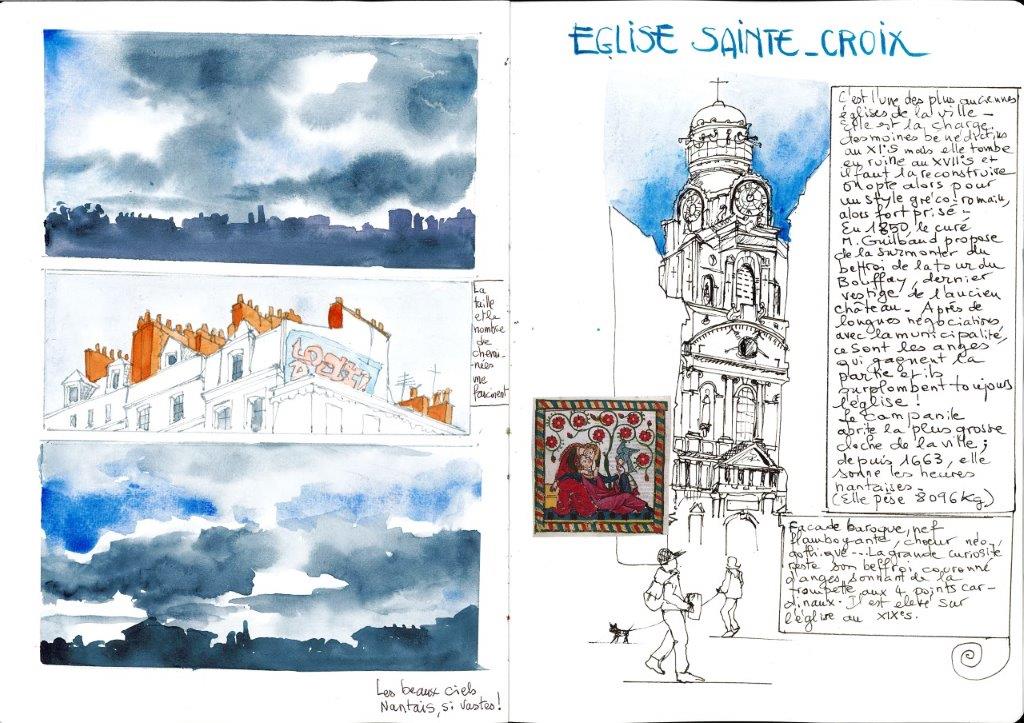 La
taille
et le
nombre
de
chemi-
nées
me
fascinent
Les beaux ciels
Nantais, si vastes !
EGLISE SAINTE_CROIX
C'est l'une des plus anciennes
églises de la ville -
Elle est la charge
des moines bénédictins
au XI°s mais elle tombe
en ruine au XVII°s et
il faut la reconstruire
On opte alors pour
un style gréco-romain,
alors fort prisé -
En 1850, le curé
M. Guilbaud propose
de la surmonter du
beffroi de la tour du
Bouffay, dernier
vestige de l'ancien
château - Après de
longues négociations
avec la municipalité,
ce sont les anges
qui gagnent la
partie et ils
surplombent toujours
l'église !
Le campanile
abrite la plus grosse
cloche de la ville ;
depuis 1663, elle
sonne les heures
nantaises -
(Elle pèse 8096 kg)
Façade baroque, nef
flamboyante, choeur néo-
gothique... La grande curiosité
reste son beffroi, couronné
d'anges sonnant de la
trompette aux 4 points car-
dinaux. Il est élevé sur
l'église au XIX°s.